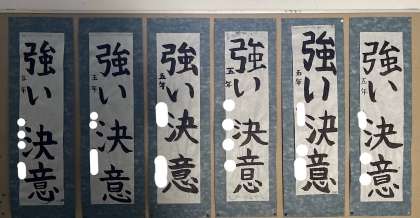 強い決意
五年
強い決意
五年
強い決意
五年
強い決意
五年
強い決意
五年
強い決意
五年